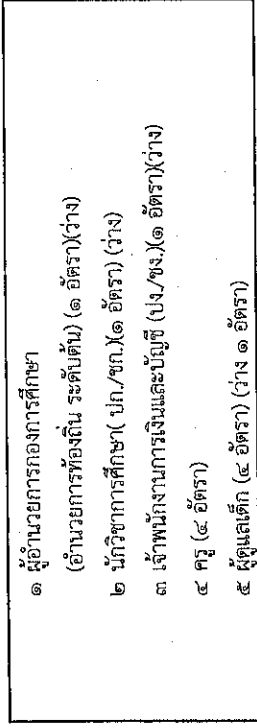 ๑ ผู้อำนวยการกองการศึกษา
(อำนวยการท้องถิ่น ระดับต้น) (๑ อัตรา)(ว่าง)
๒ นักวิชาการศึกษา( ปก./ชก.)(๑ อัตรา) (ว่าง)
๓ เจ้าพนักงานการเงินและบัญชี (ปง./ชง.)(๑ อัตรา)(ว่าง)
๔ ครู (๔ อัตรา)
๕ ผู้ดูแลเด็ก (๔ อัตรา) (ว่าง ๑ อัตรา)